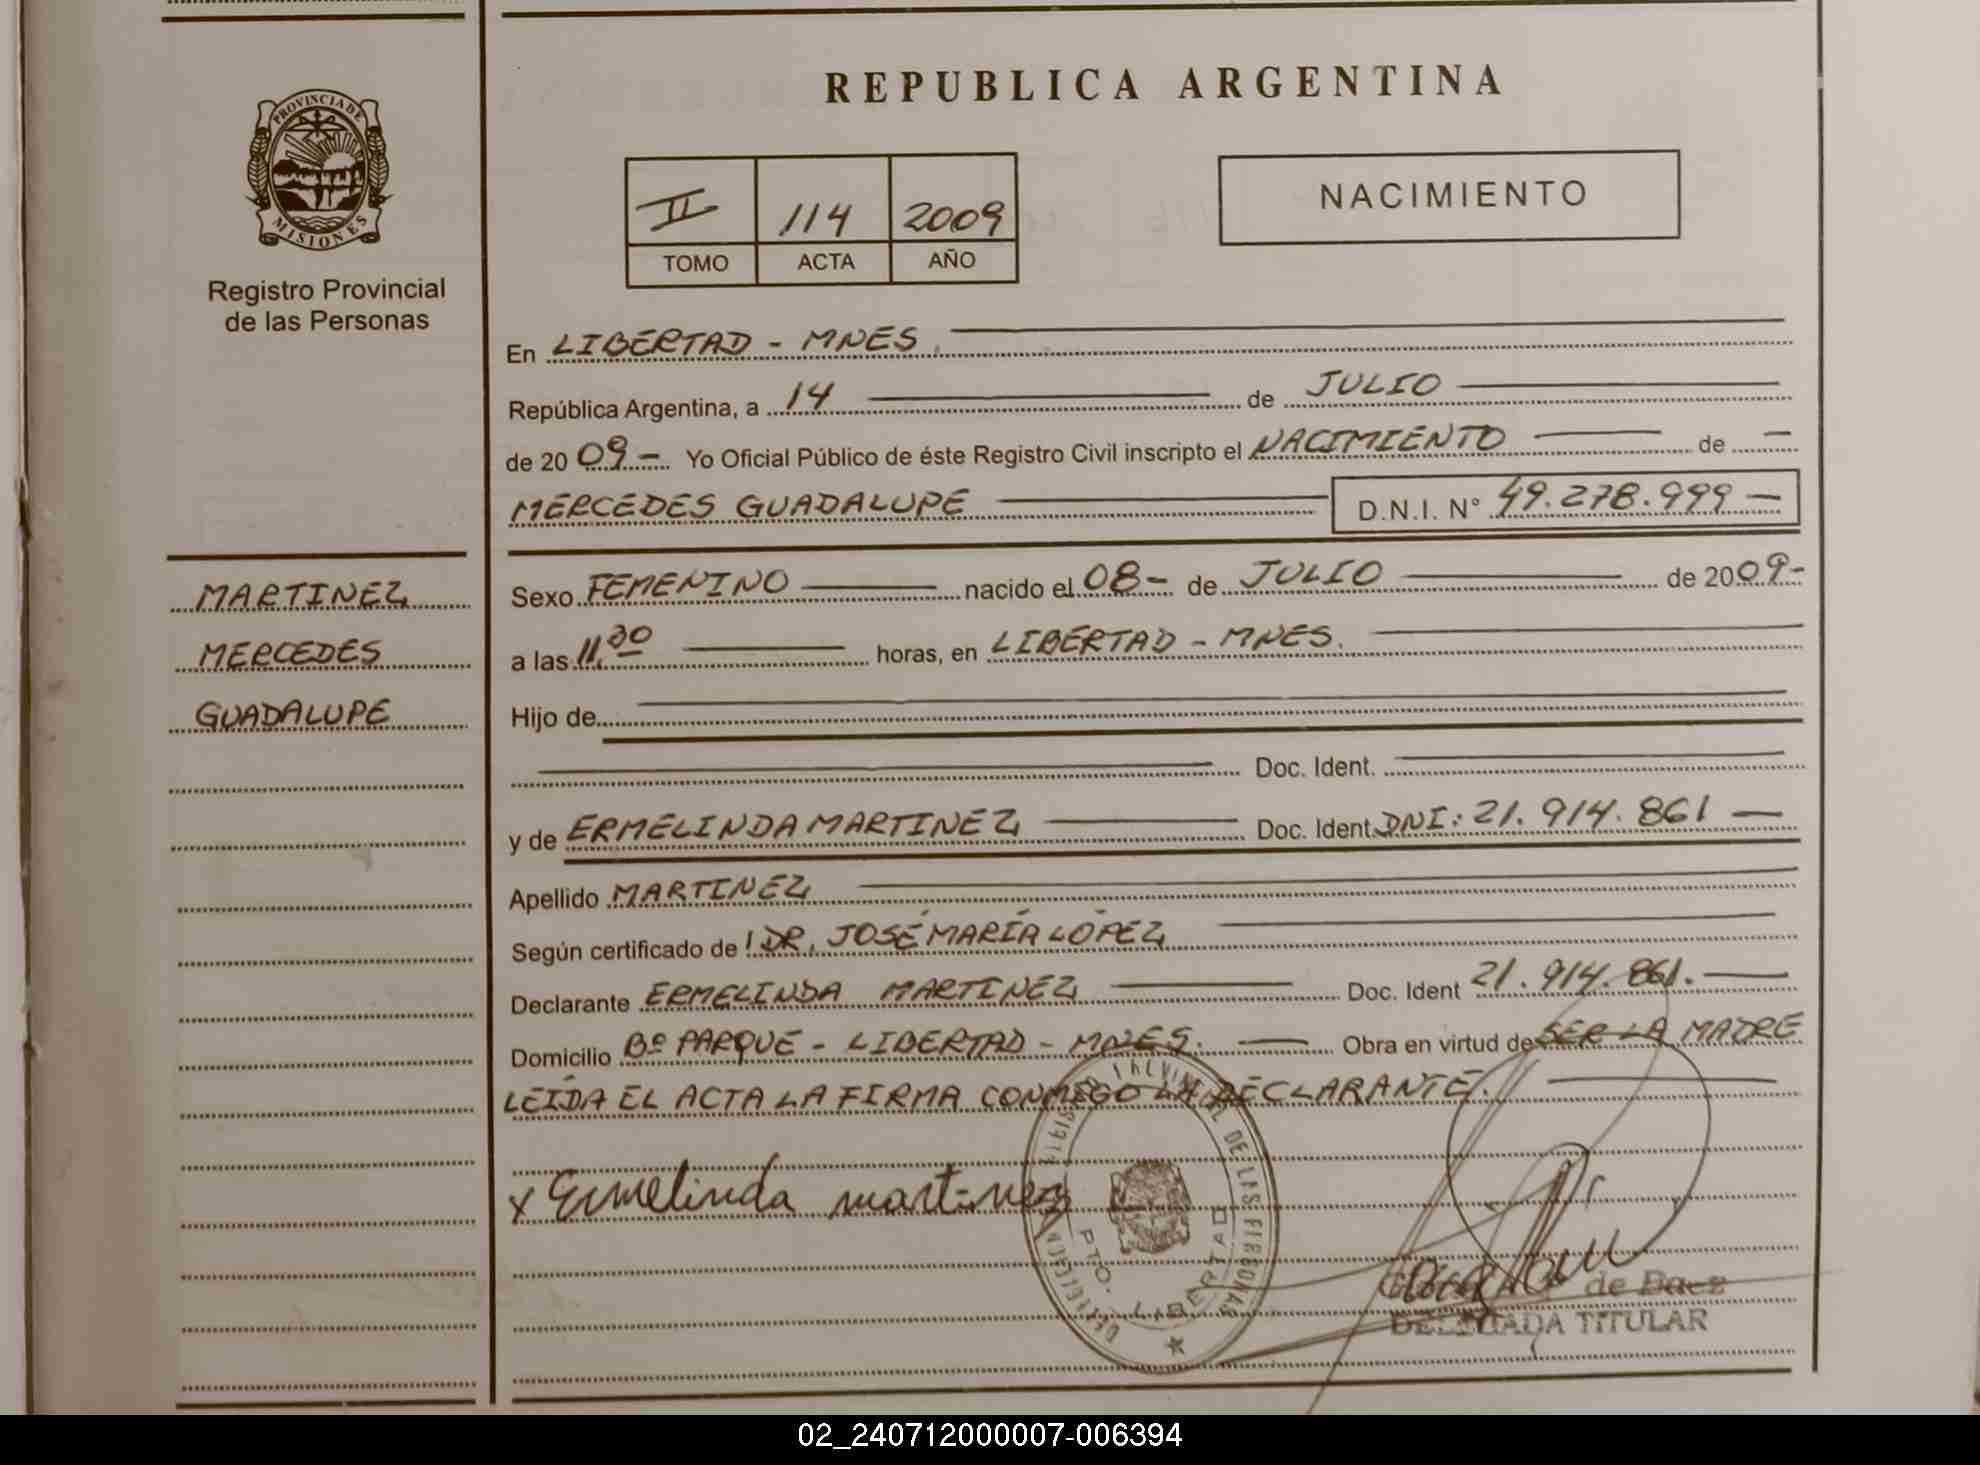 REPUBLICA ARGENTINA
PROVINCIA DE
MISIONES
Registro Provincial
de las Personas
II 114 2009
TOMO ACTA AÑO
NACIMIENTO
En LIBERTAD - MNES.
República Argentina, a 14 de JULIO
de 20 09 - Yo Oficial Público de éste Registro Civil inscripto el NACIMIENTO de -
MERCEDES GUADALUPE D.N.I. N° 49.278.999 -
MARTINEZ
MERCEDES
GUADALUPE
Sexo FEMENINO nacido el 08 - de JULIO de 2009 -
a las 11,30 horas, en LIBERTAD - MNES.
Hijo de
Doc. Ident.
y de ERMELINDA MARTINEZ Doc. Ident. DNI: 21.914.861 -
Apellido MARTINEZ
Según certificado de DR. JOSÉ MARÍA LÓPEZ
Declarante ERMELINDA MARTINEZ Doc. Ident 21.914.861. -
Domicilio Bº PARQUE - LIBERTAD - MNES. Obra en virtud de SER LA MADRE
LEÍDA EL ACTA LA FIRMA CONMIGO LA DECLARANTE.
x Ermelinda martinez
DE LAS PERSONAS
PTO. LIBERTAD
de Baez
DELEGADA TITULAR
02_240712000007-006394